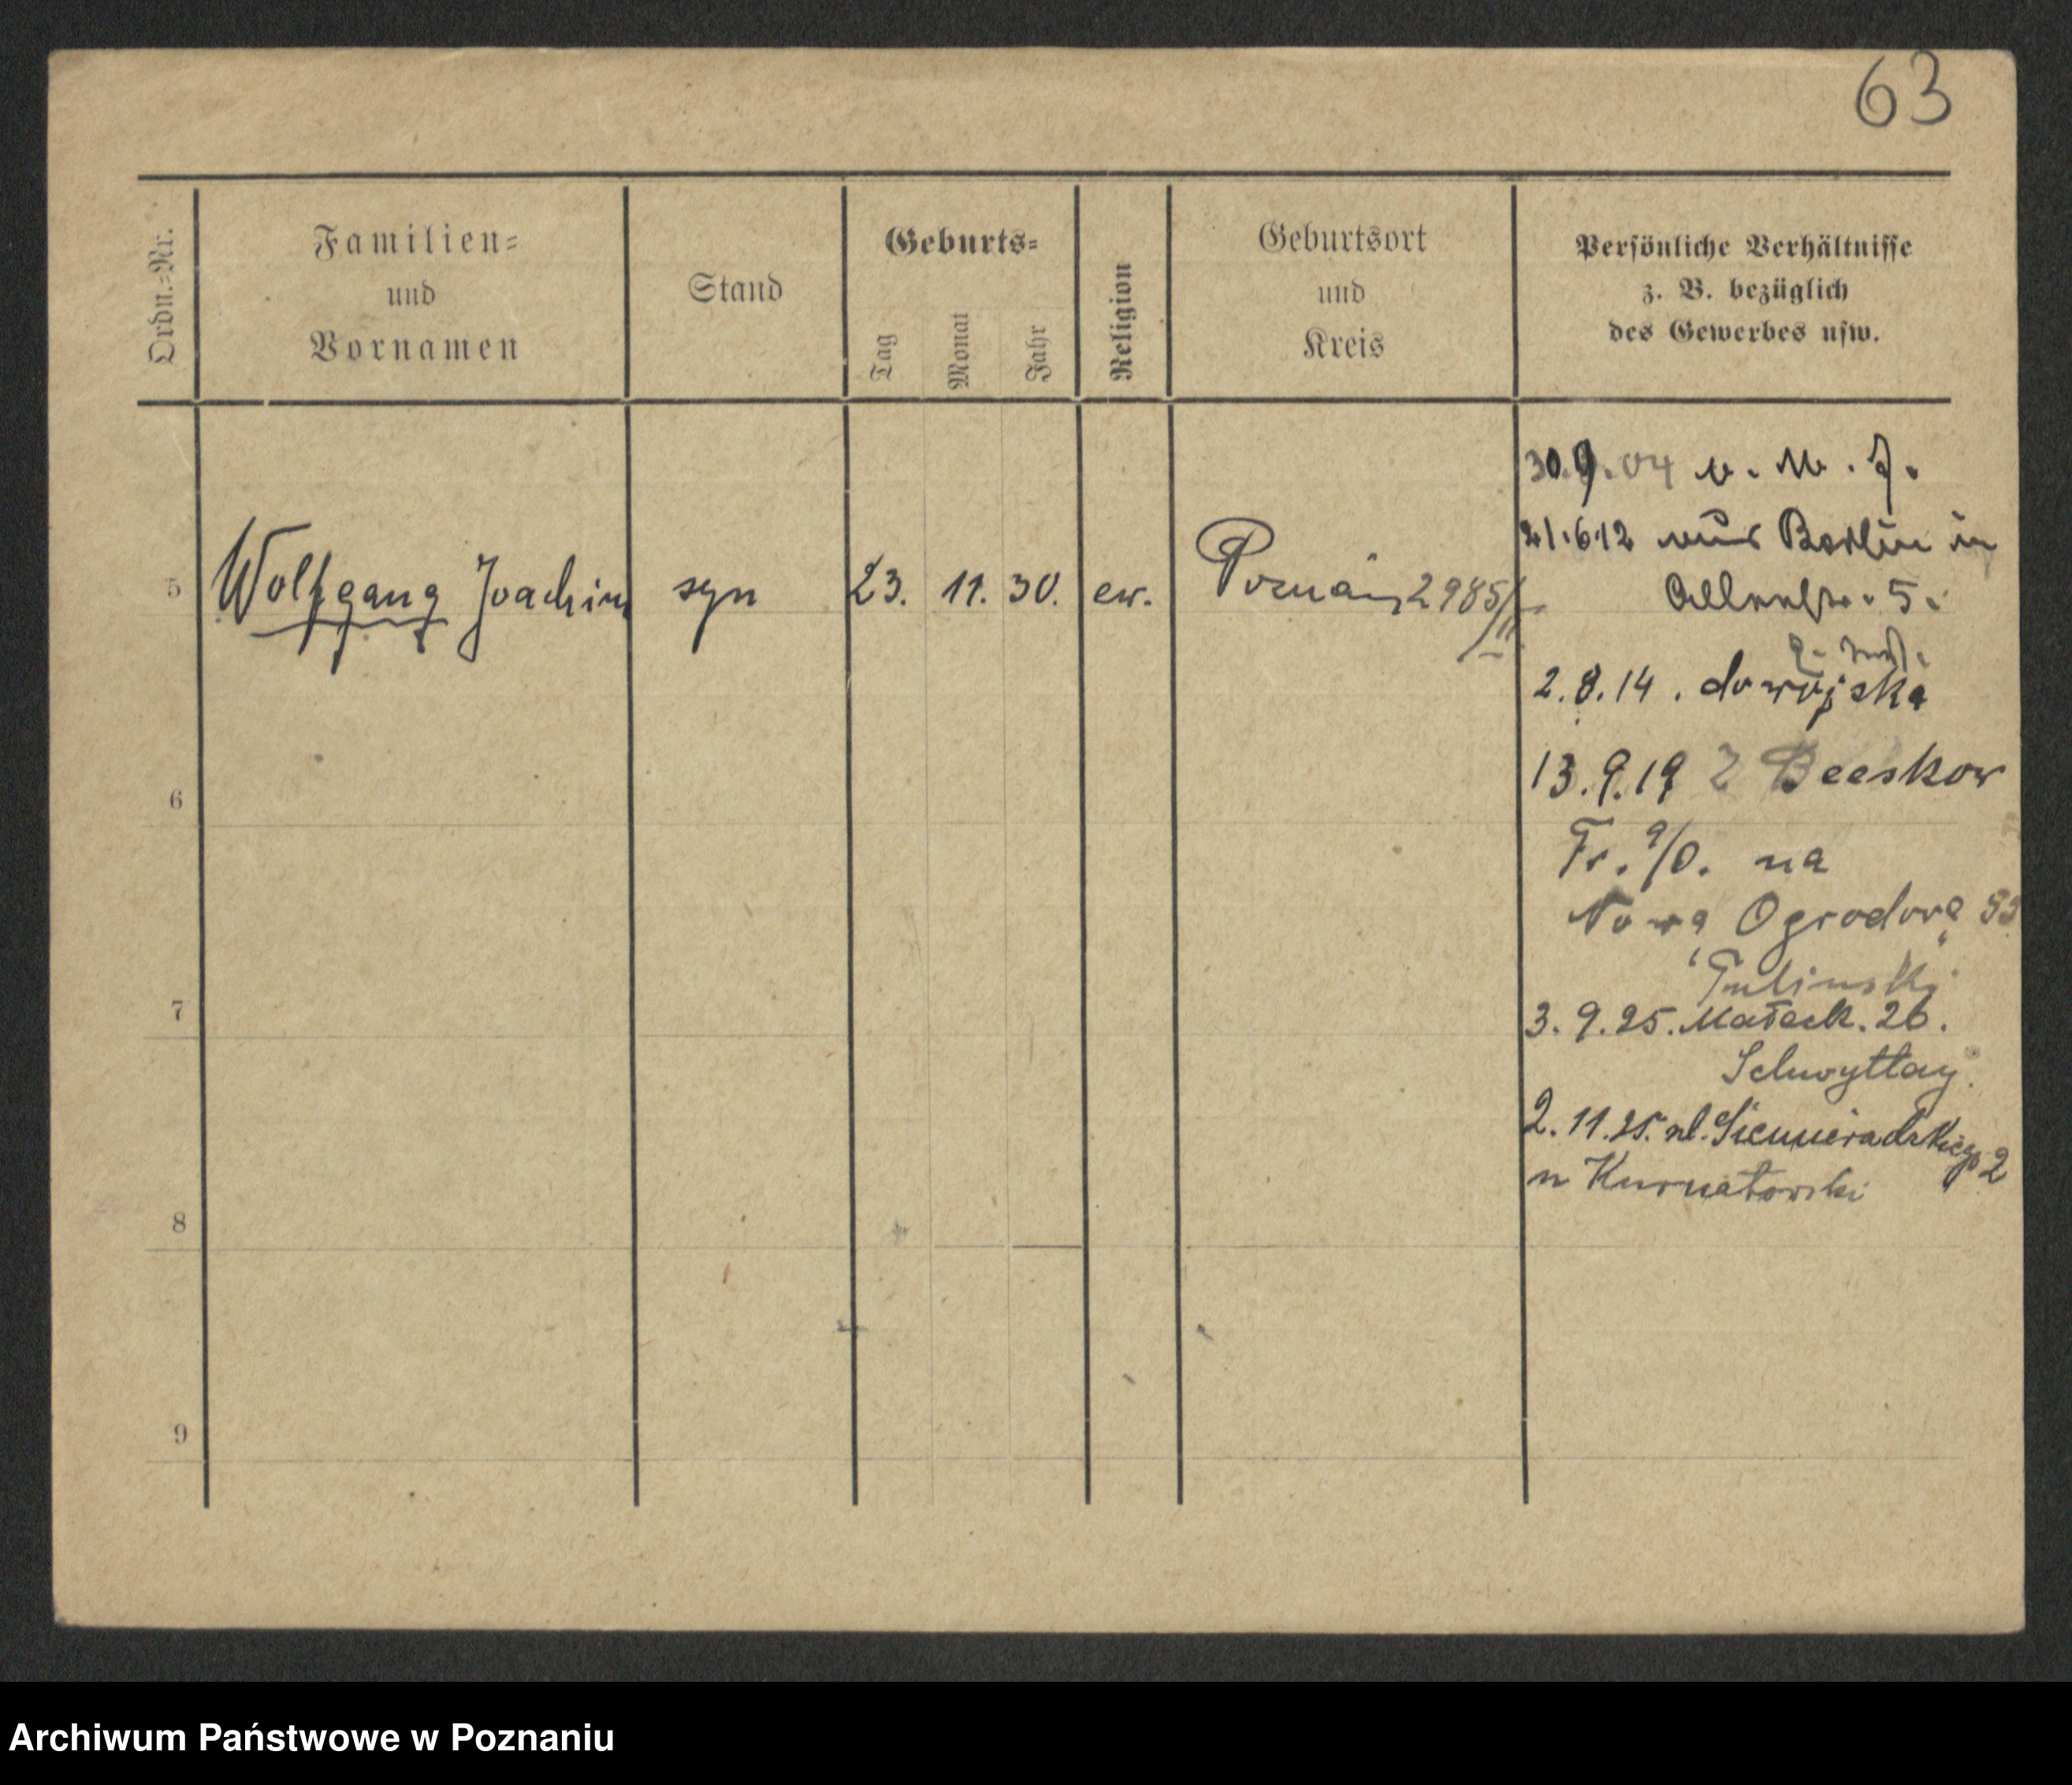 63
Ordn.-Nr.
Familien-
und
Vornamen
Stand
Geburts-
Tag
Monat
Jahr
Religion
Geburtsort
und
Kreis
Persönliche Verhältnisse
z. B. bezüglich
des Gewerbes usw.
30.9.04 v. M. J.
21.6.12 aus Berlin in
5.
5 Wolfgang Joachim syn 23. 11. 30. ew. Poznań 2985/II
2.8.14. do wojska
13.9.19 z Beeskow
6
Fr. a/O. na
Nowa Ogrodowa
7
3. 9. 25. Małeck. 26.
2. 11. 25. ul. Siemieradzkiego 2
u Kurnatowski
8
9
Archiwum Państwowe w Poznaniu